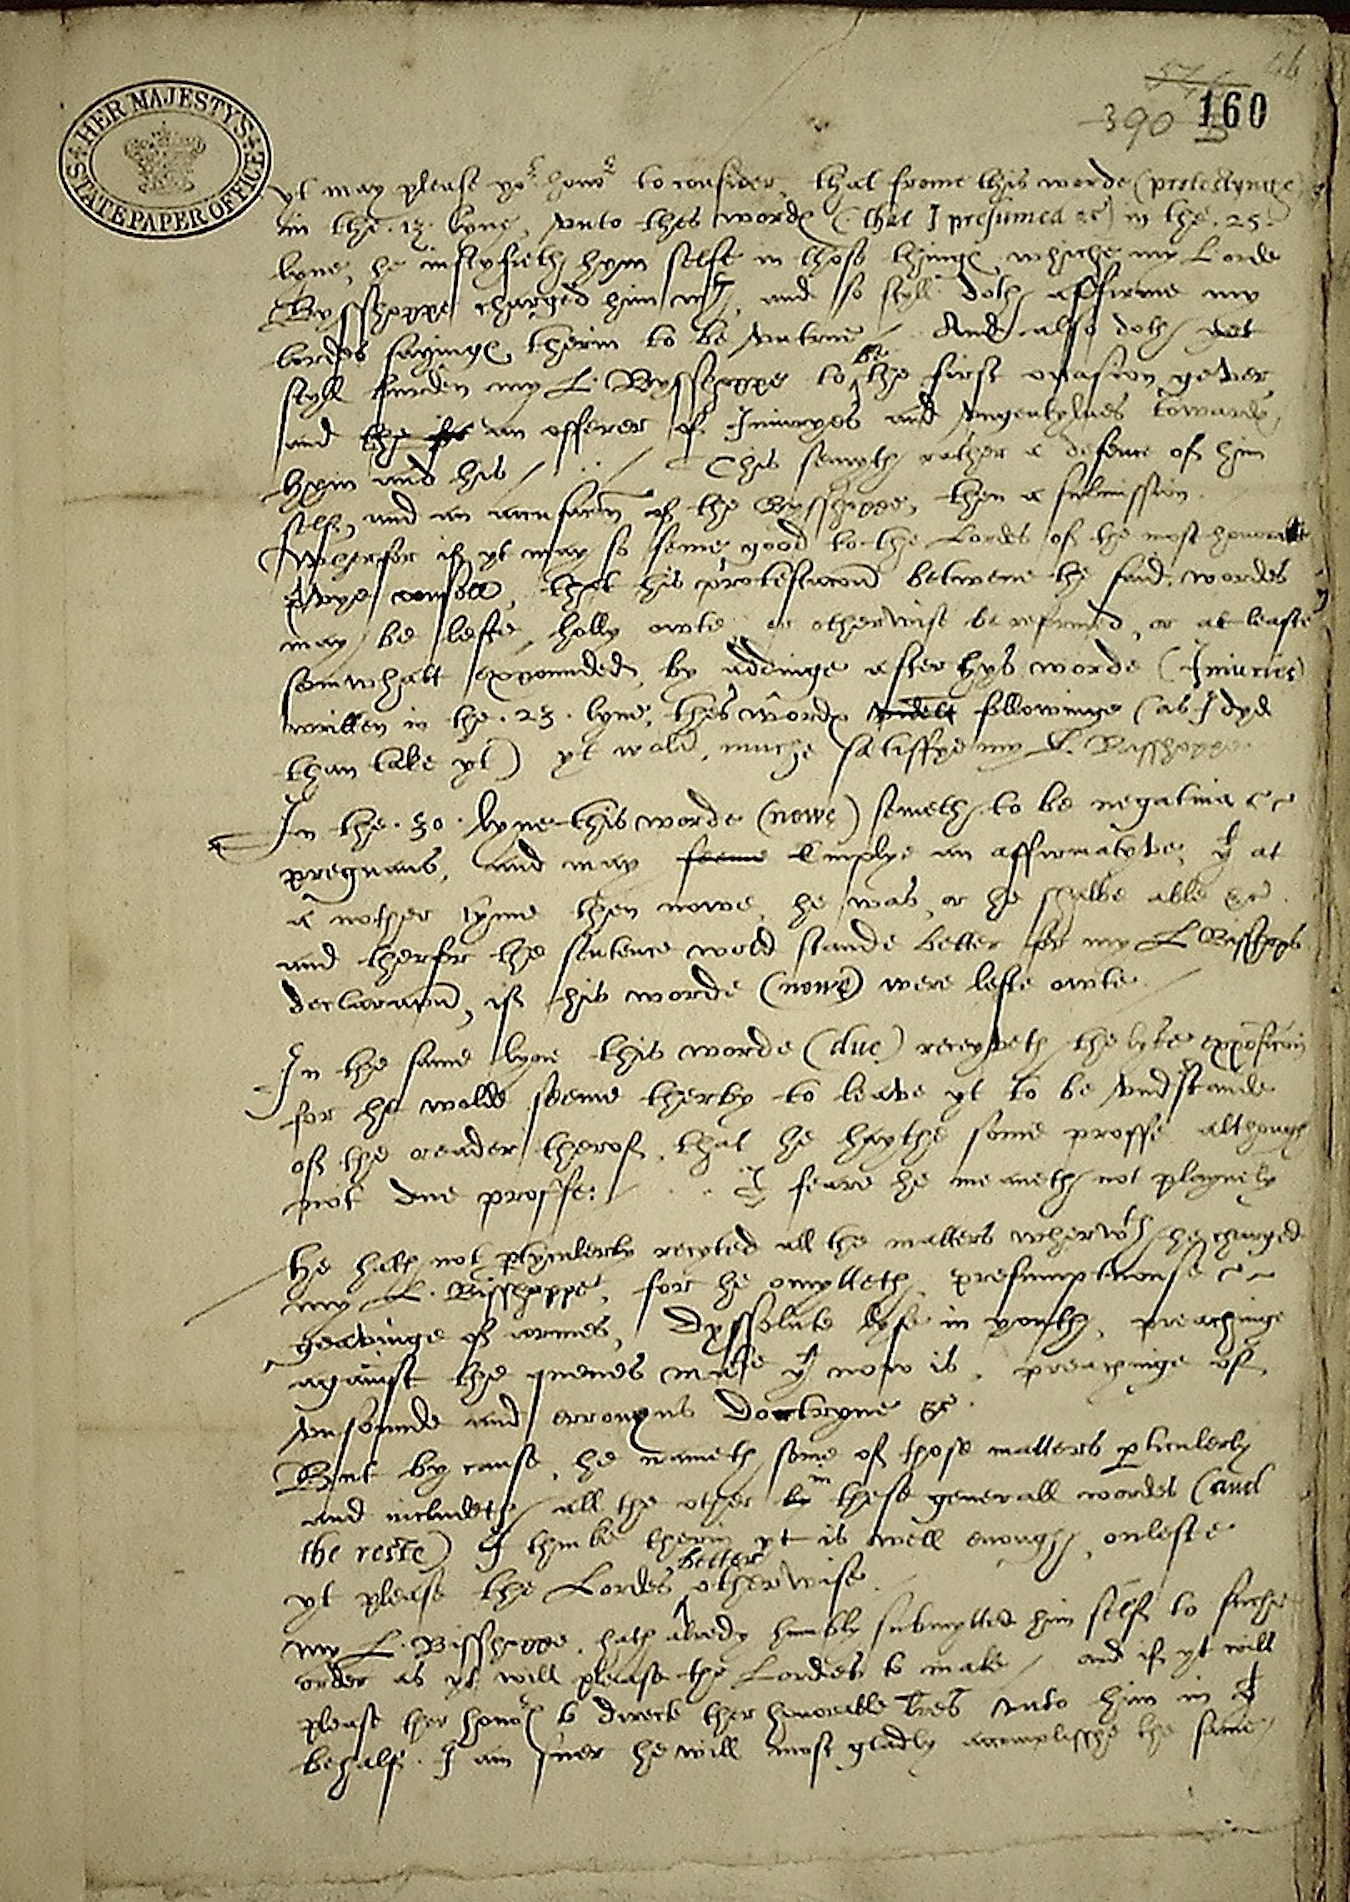 HER MAJESTY'S
STATE PAPER OFFICE
390 160
yt may please yor honors to consider, that frome this worde (protestynge)
in the .13. lyne, vnto thes wordes (that I presumed &c) in the .25.
lyne, he iustyfieth hym selfe in those thinges, whiche my Lorde
Bysshoppe charged him wth, and so styll doth affirme my
lordes sayinges therin to be vntrue / And also doth yet
styll burden my L. Bysshoppe to be the first occasion gever
and the fir an offerer of Iniuryes and vngentylnes towardes
hym and his / . . / This semyth rather a defence of him
self, and an accusacion of the Bysshoppe, then a submission.
Wherfor if yt may so seme good to the Lordes of the most honorable
prvye consell, that his protestacion betwene the said wordes
may be lefte holly owte or otherwise be reformed, or at leaste
somwhatt expounded, by addinge after hys worde (Iniuries)
written in the .23. lyne, thes wordes followinge (as I dyd
than take yt) yt wold muche satisffye my L. Bisshoppe
In the .30. lyne this worde (nowe) semeth to be negatiua
pregnans, and may seeme Employe an affirmatyve, yt at
a nother tyme then nowe, he was, or he shalbe able &c.
and therfor the sentence wold stande better for my L Bisshops
declaracion, if this worde (nowe) were lefte owte.
In the same lyne this worde (due) receyveth the lyke exposicion
for he wolde seeme therby to leave yt to be vnderstande
of the reader therof, that he haythe some proffe although
not due proffe: / . . I feare he meaneth not playnely
He hath not partyculerly recyted all the matters wherwth he charged
my L. Bisshoppe, for he omytteth, presumptuouse
geavinge of armes, Dyssolute lyfe in youth, preachinge
against the quenes matie yt now is, preachinge of
vnsounde and erronyus Doctryne &c.
But by cause, he nameth some of those matters perticulerly
and includeth all the other by in these generall wordes (and
the reste) I thinke therin yt is well enough, onleste
yt please the Lordes better otherwise.
my L. Bisshoppe hath alredy humbly submytted him self to suche
order as yt will please the Lordes to make / and if yt will
please ther honors to directe ther honorable lres vnto him in yt
behalf. I am suer he will most gladly accomplisshe the same /